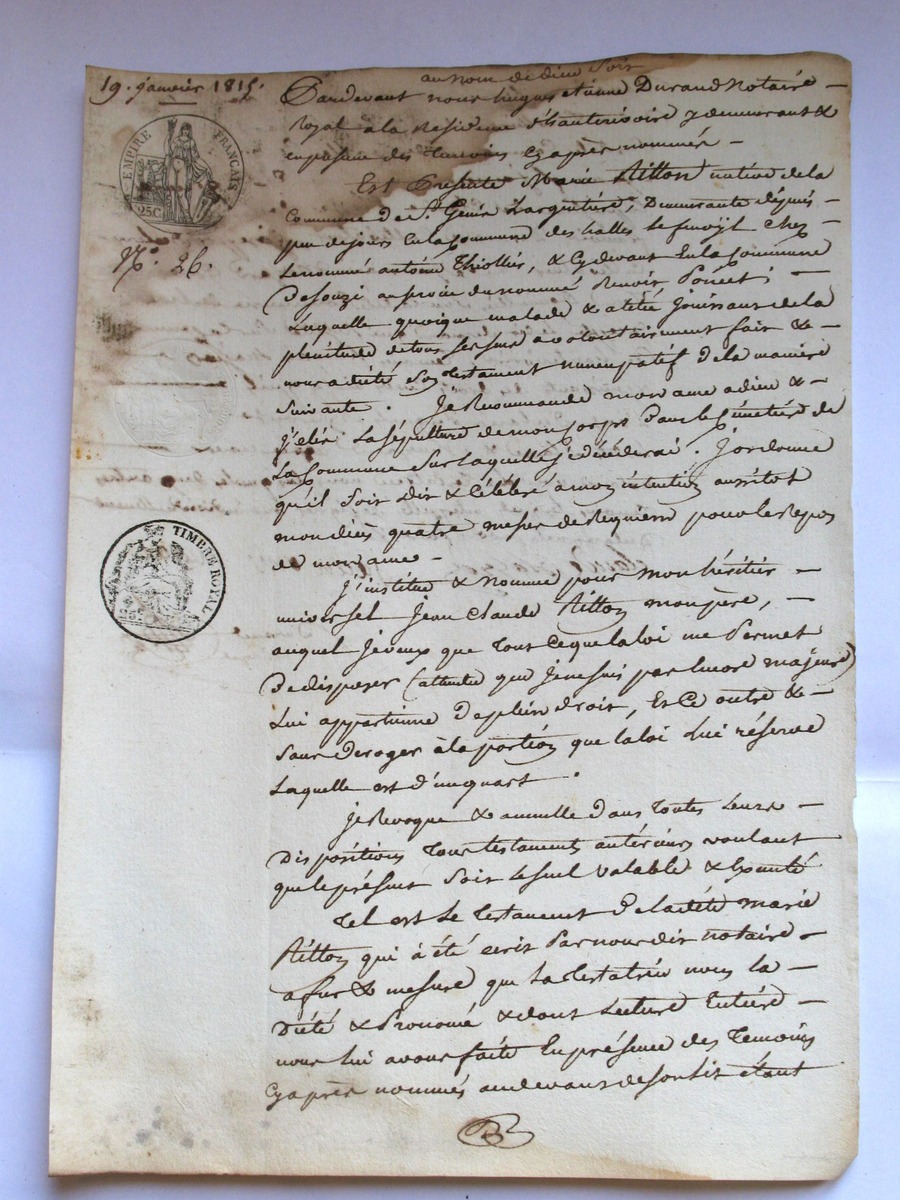 19. janvier 1815.
au nom de dieu soit
EMPIRE FRANÇAIS
25C
N.° 26.
TIMBRE ROYAL
Pardevant nous hugues etienne Durand Notaire
Royal a la Residence d'hauterivoire y demeurant &
en presence des Temoins cy après nommés
Est Presente Marie Ritton native de la
Commune de St. Genis Largentiere, Demeurante depuis
peu de jours En la Commune des halles le fenoyl chez
le nommé antoine Thiollier, & cy devant En la Commune
De souzi au service du nommé Benoit Poncet ;
Laquelle quoique malade & alitée jouissant de la
plenitude de tous ses sens a volontairement fait &
nous a dicté son testament nuncupatif de la maniere
suivante. Je Recommande mon ame a dieu &
j'elis La sépulture de mon corps Dans le Cimetiere de
La Commune sur Laquelle je décéderai. J'ordonne
qu'il soit Dit & Célébré a mon intention aussitot
mon décès quatre messes de Requiem pour le Repos
de mon ame
J'institue & nomme pour mon héritier
universel Jean Claude Ritton mon père,
auquel je veux que Tout ce que la loi me Permet
De disposer (attendu que je ne suis pas encore majeure)
Lui appartienne De plein droit, Et Ce outre &
sans deroger à la portion que la loi Lui réserve
Laquelle est d'un quart.
Je Revoque & annulle Dans Toutes Leurs
Dispositions Tous testaments antérieurs voulant
que le présent soit le seul valable & Exécuté
Tel est Le Testament De la dite marie
Ritton qui à été ecrit Par nous dit notaire
a fur & mesure que La Testatrice nous l'a
Dicté & Prononcé & dont Lecture Entiere
nous lui avons faite En présence des Temoins
Cy après nommés au devant de son lit étant